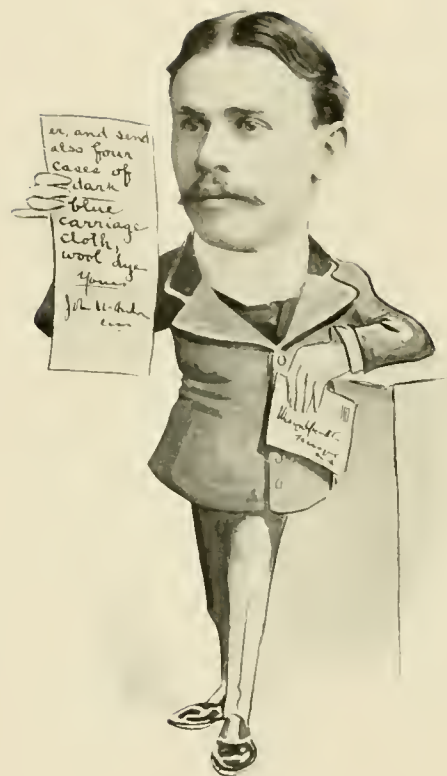 er, and send
also four
cases of
dark
blue
carriage
cloth,
wool dye
Yours
John